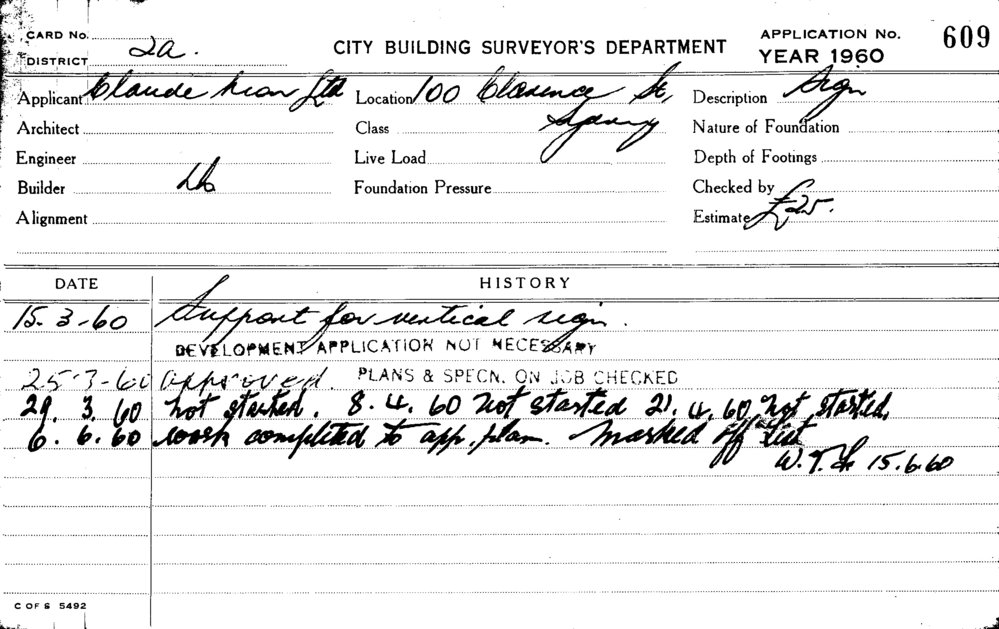 CARD No.
DISTRICT 2a.
CITY BUILDING SURVEYOR'S DEPARTMENT
APPLICATION No. 609
YEAR 1960
Applicant Claude Neon Ltd Location 100 Clarence St, Description Sign
Architect Class Sydney Nature of Foundation
Engineer Live Load Depth of Footings
Builder Foundation Pressure Checked by
Alignment Estimate £25.
DATE HISTORY
15.3-60 Support for vertical sign.
DEVELOPMENT APPLICATION NOT NECESSARY
25-3-60 Approved. PLANS & SPECN. ON JOB CHECKED
29. 3. 60 not started. 8. 4. 60 not started 21. 4. 60 not started.
6. 6. 60 work completed to app. plan. Marked off list
15.6.60
C OF S 5492